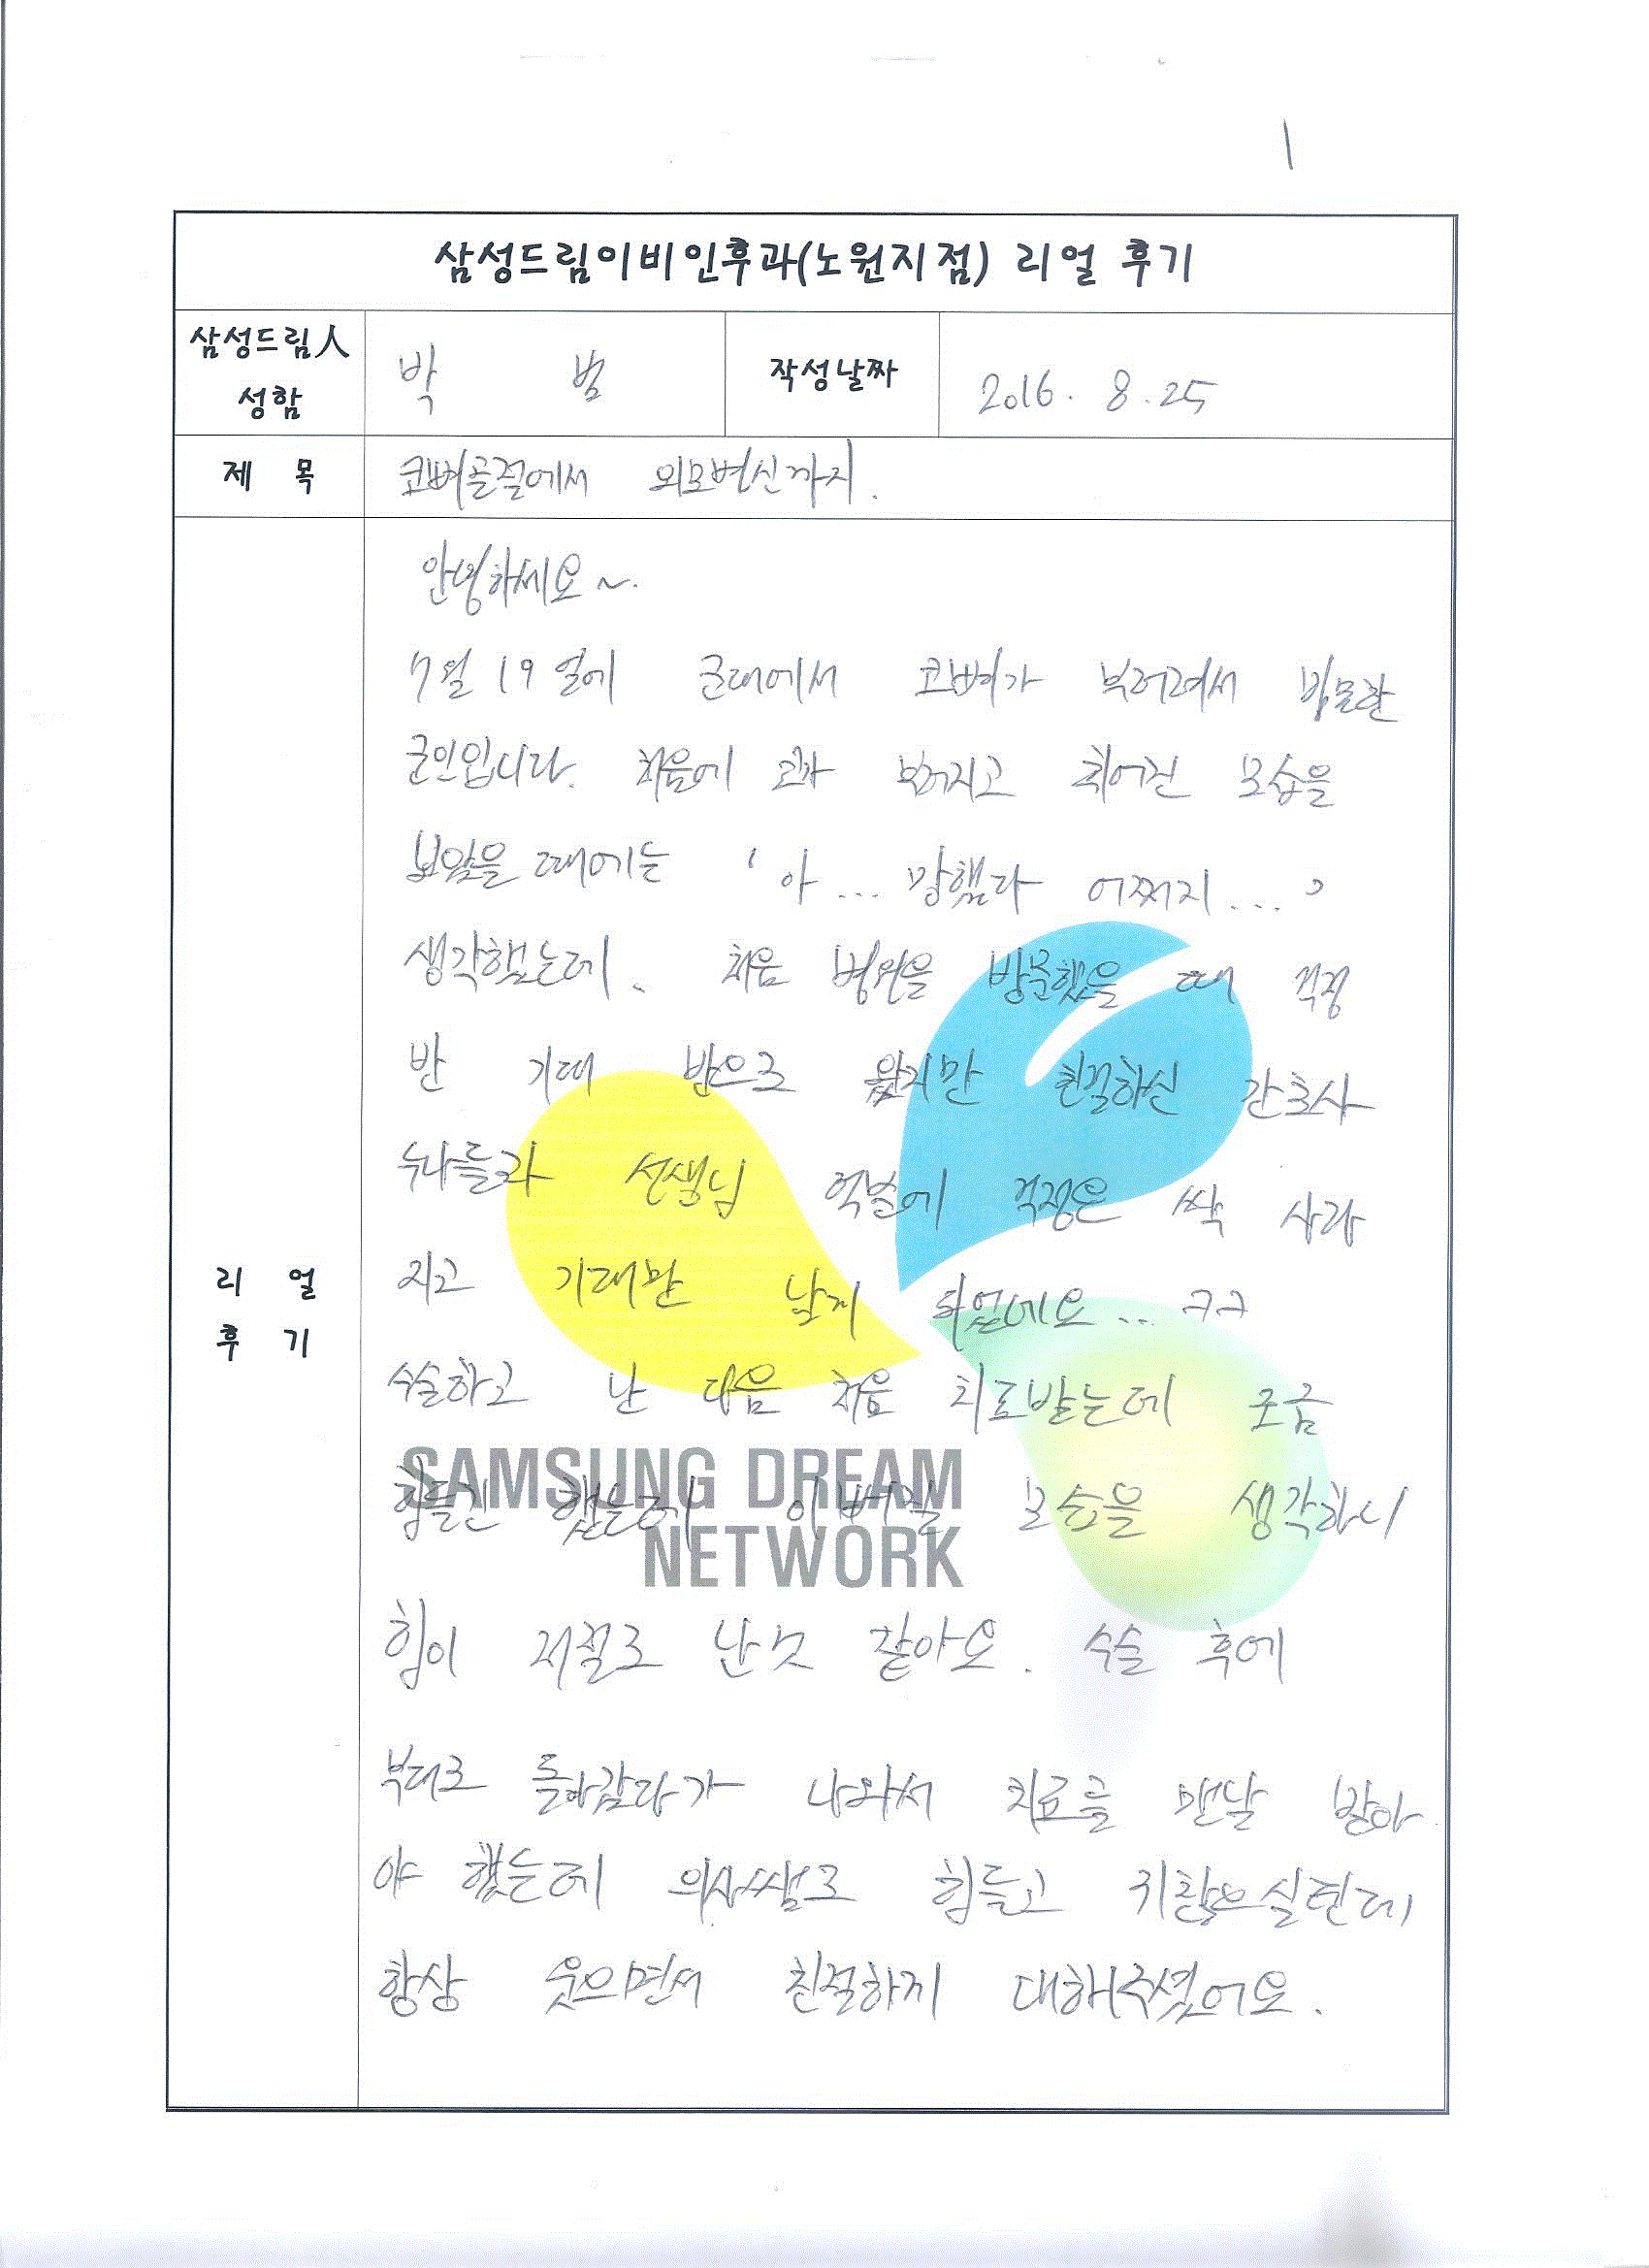 1
삼성드림이비인후과(노원지점) 리얼 후기
삼성드림人 성함
박 범
작성날짜
2016. 8. 25
제 목
코뼈골절에서 외모변신까지.
리 얼 후 기
안녕하세요~.
7월 19일에 군대에서 코뼈가 부러져서 방문한
군인입니다. 처음에 코가 부러지고 휘어진 모습을
보았을 때에는 '아... 망했다 어쩌지....'
생각했는데. 처음 병원을 방문했을 때 걱정
반 기대 반으로 왔지만 친절하신 간호사
누나들과 선생님 덕분에 걱정은 싹 사라
지고 기대만 남게 되었네요... ㅋㅋ
수술하고 난 다음 처음 치료받는데 조금
힘들긴 했는데 이뻐질 모습을 생각하니
힘이 저절로 난것 같아요. 수술 후에
부대로 돌아갔다가 나와서 치료를 맨날 받아
야 했는데 의사쌤도 힘들고 귀찮으실텐데
항상 웃으면서 친절하게 대해주셨어요.
SAMSUNG DREAM
NETWORK